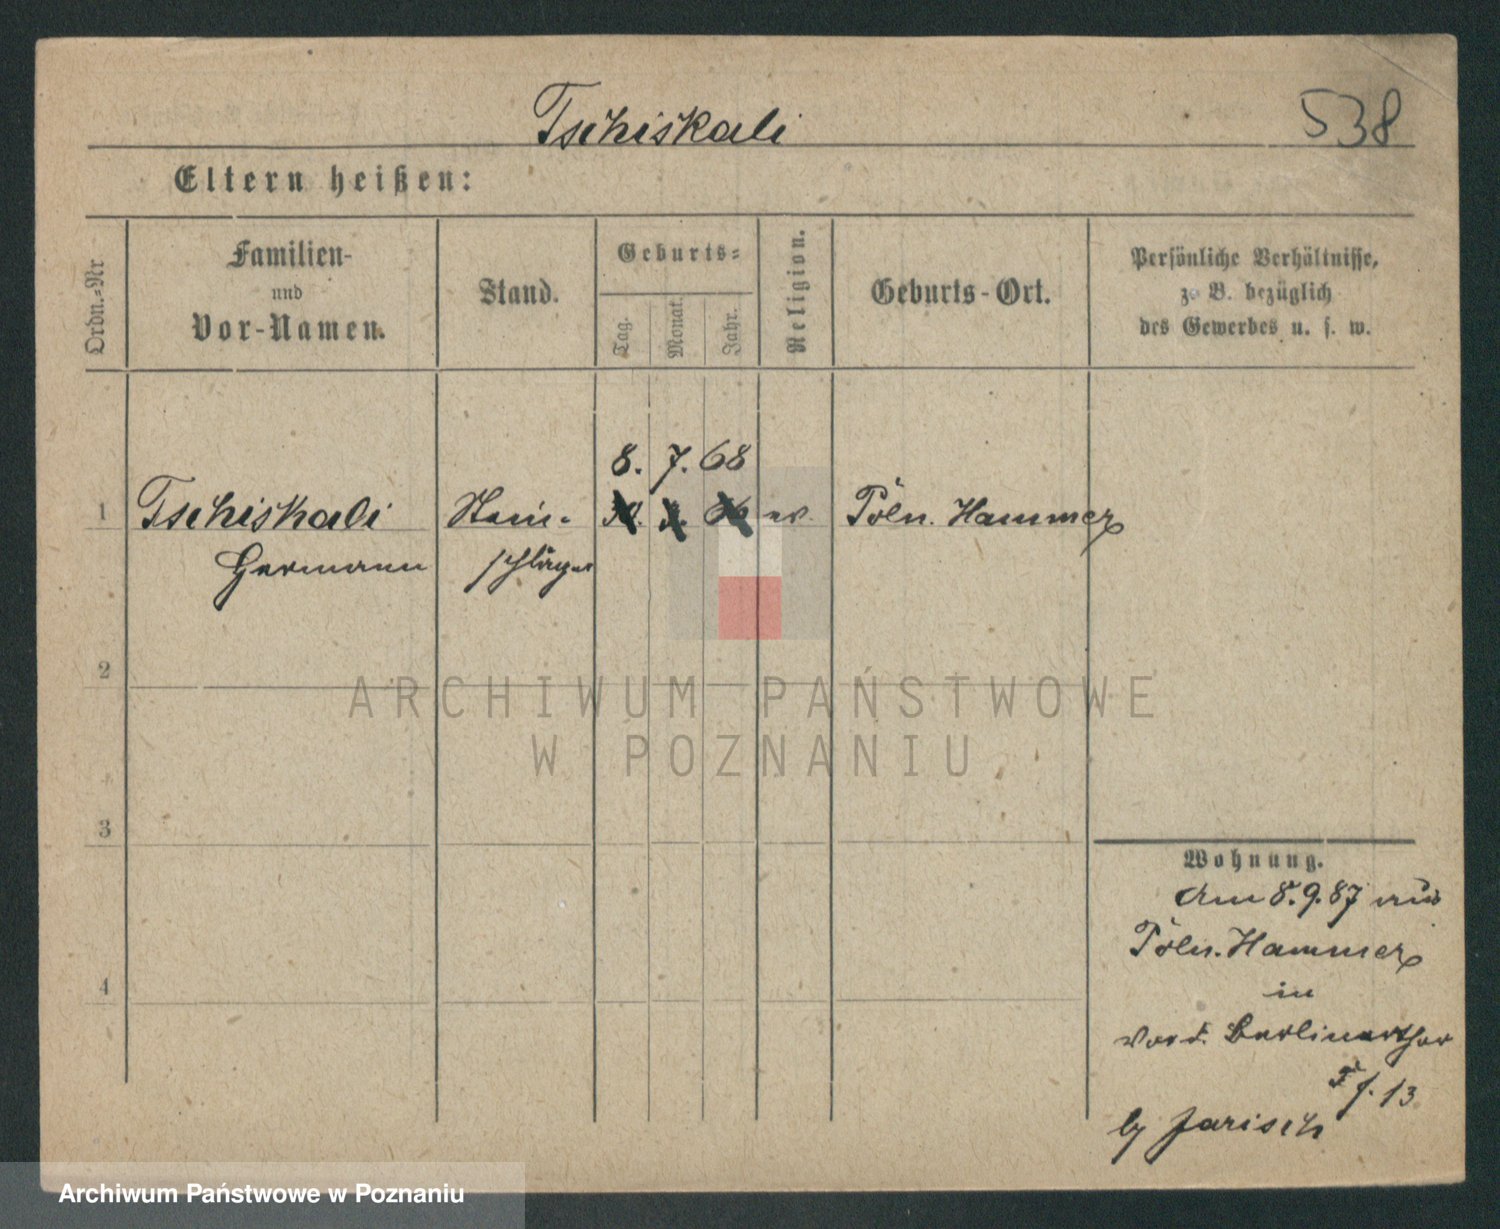 Tschiskali
538
Eltern heißen:
Ordn.-Nr
Familien-
und
Vor-Namen.
Stand.
Geburts-
Tag.
Monat.
Jahr.
Religion.
Geburts-Ort.
Persönliche Verhältnisse,
z. B. bezüglich
des Gewerbes u. s. w.
8. 7. 68
1 Tschiskali Stein- ev. Poln. Hammer
Hermann schläger
2
ARCHIWUM PAŃSTWOWE
W POZNANIU
3
Wohnung.
Am 8.9.87 aus
Poln. Hammer
4
in
vor d. Berlinerthor
13
Jarisch
Archiwum Państwowe w Poznaniu